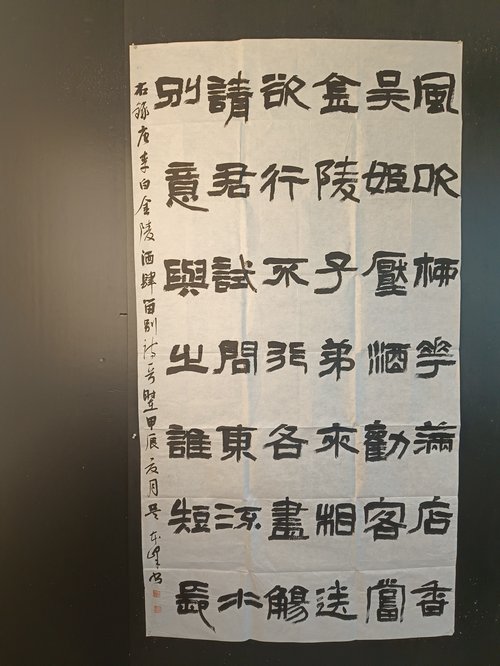 風吹柳花滿店香
吳姬壓酒勸客嘗
金陵子弟來相送
欲行不行各盡觴
請君試問東流水
別意與之誰短長
右錄唐李白金陵酒肆留別詩一首時在甲辰夏月